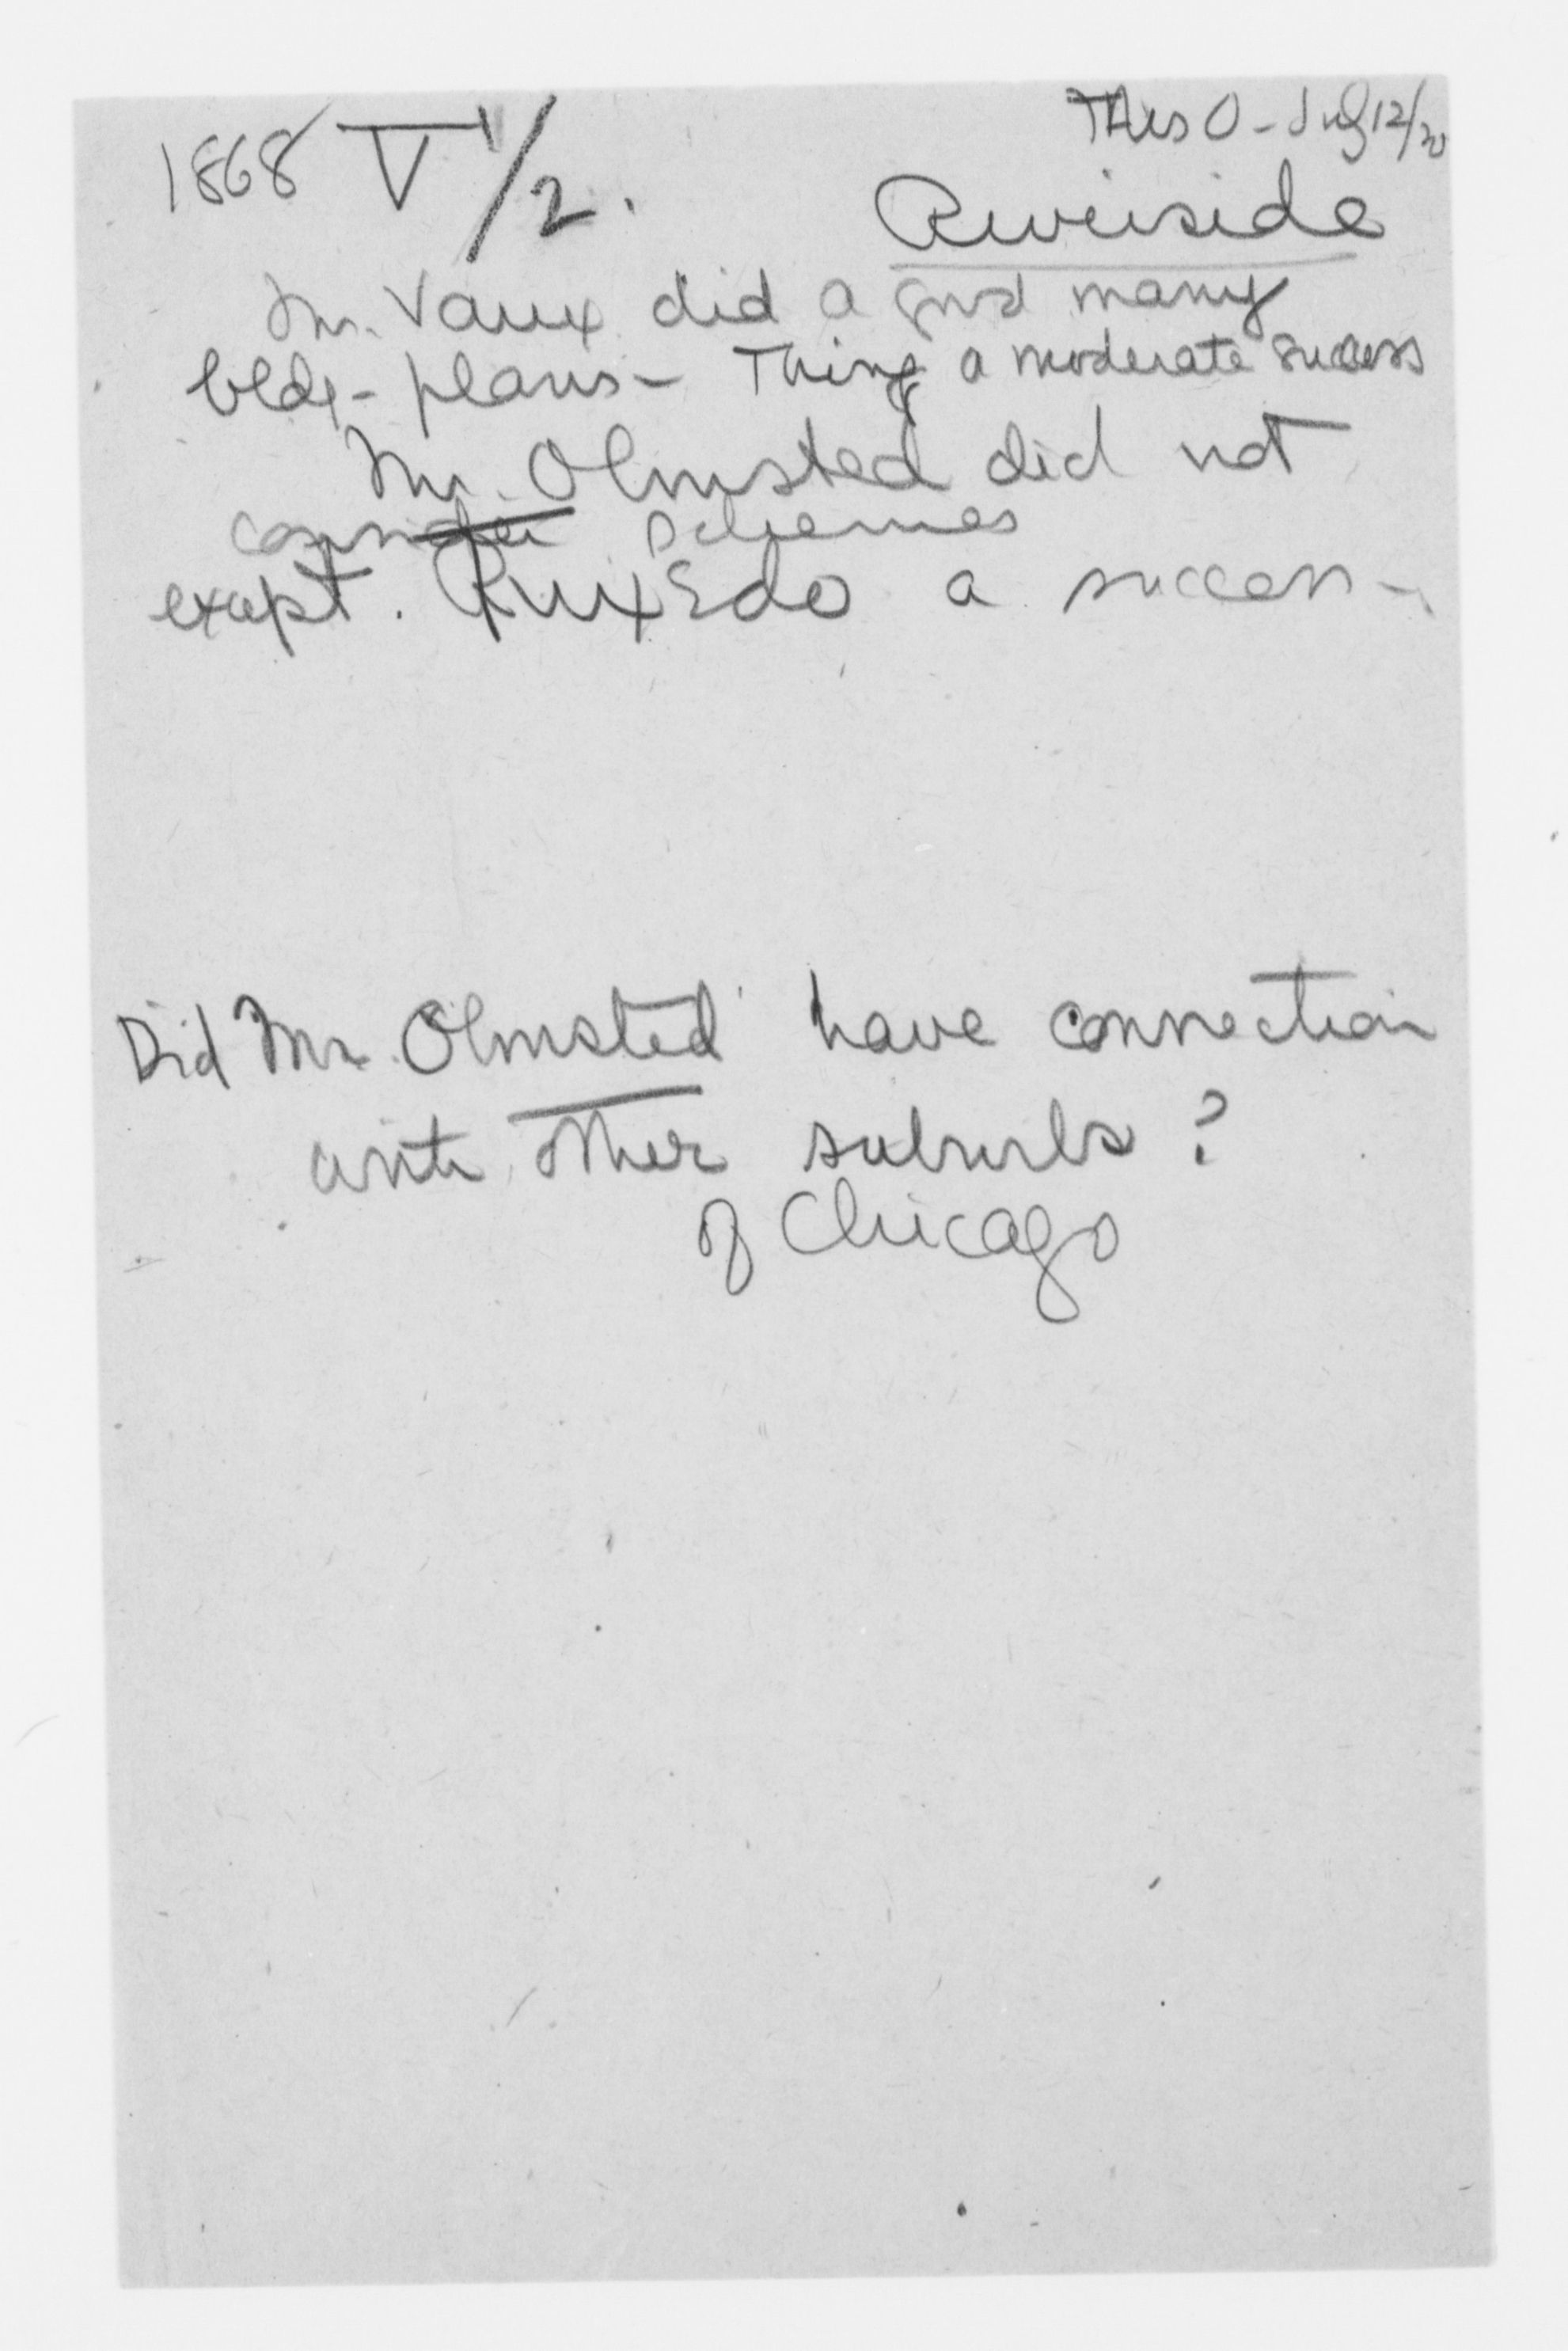 Mrs O - July 12/20
1868 V 1/2.
Riverside
Mr. Vaux did a good many
bldg- plans - Thing a moderate success
Mr. Olmsted did not
consider schemes
except. Tuxedo a success -
Did Mr. Olmsted have connection
with other suburbs ?
of Chicago